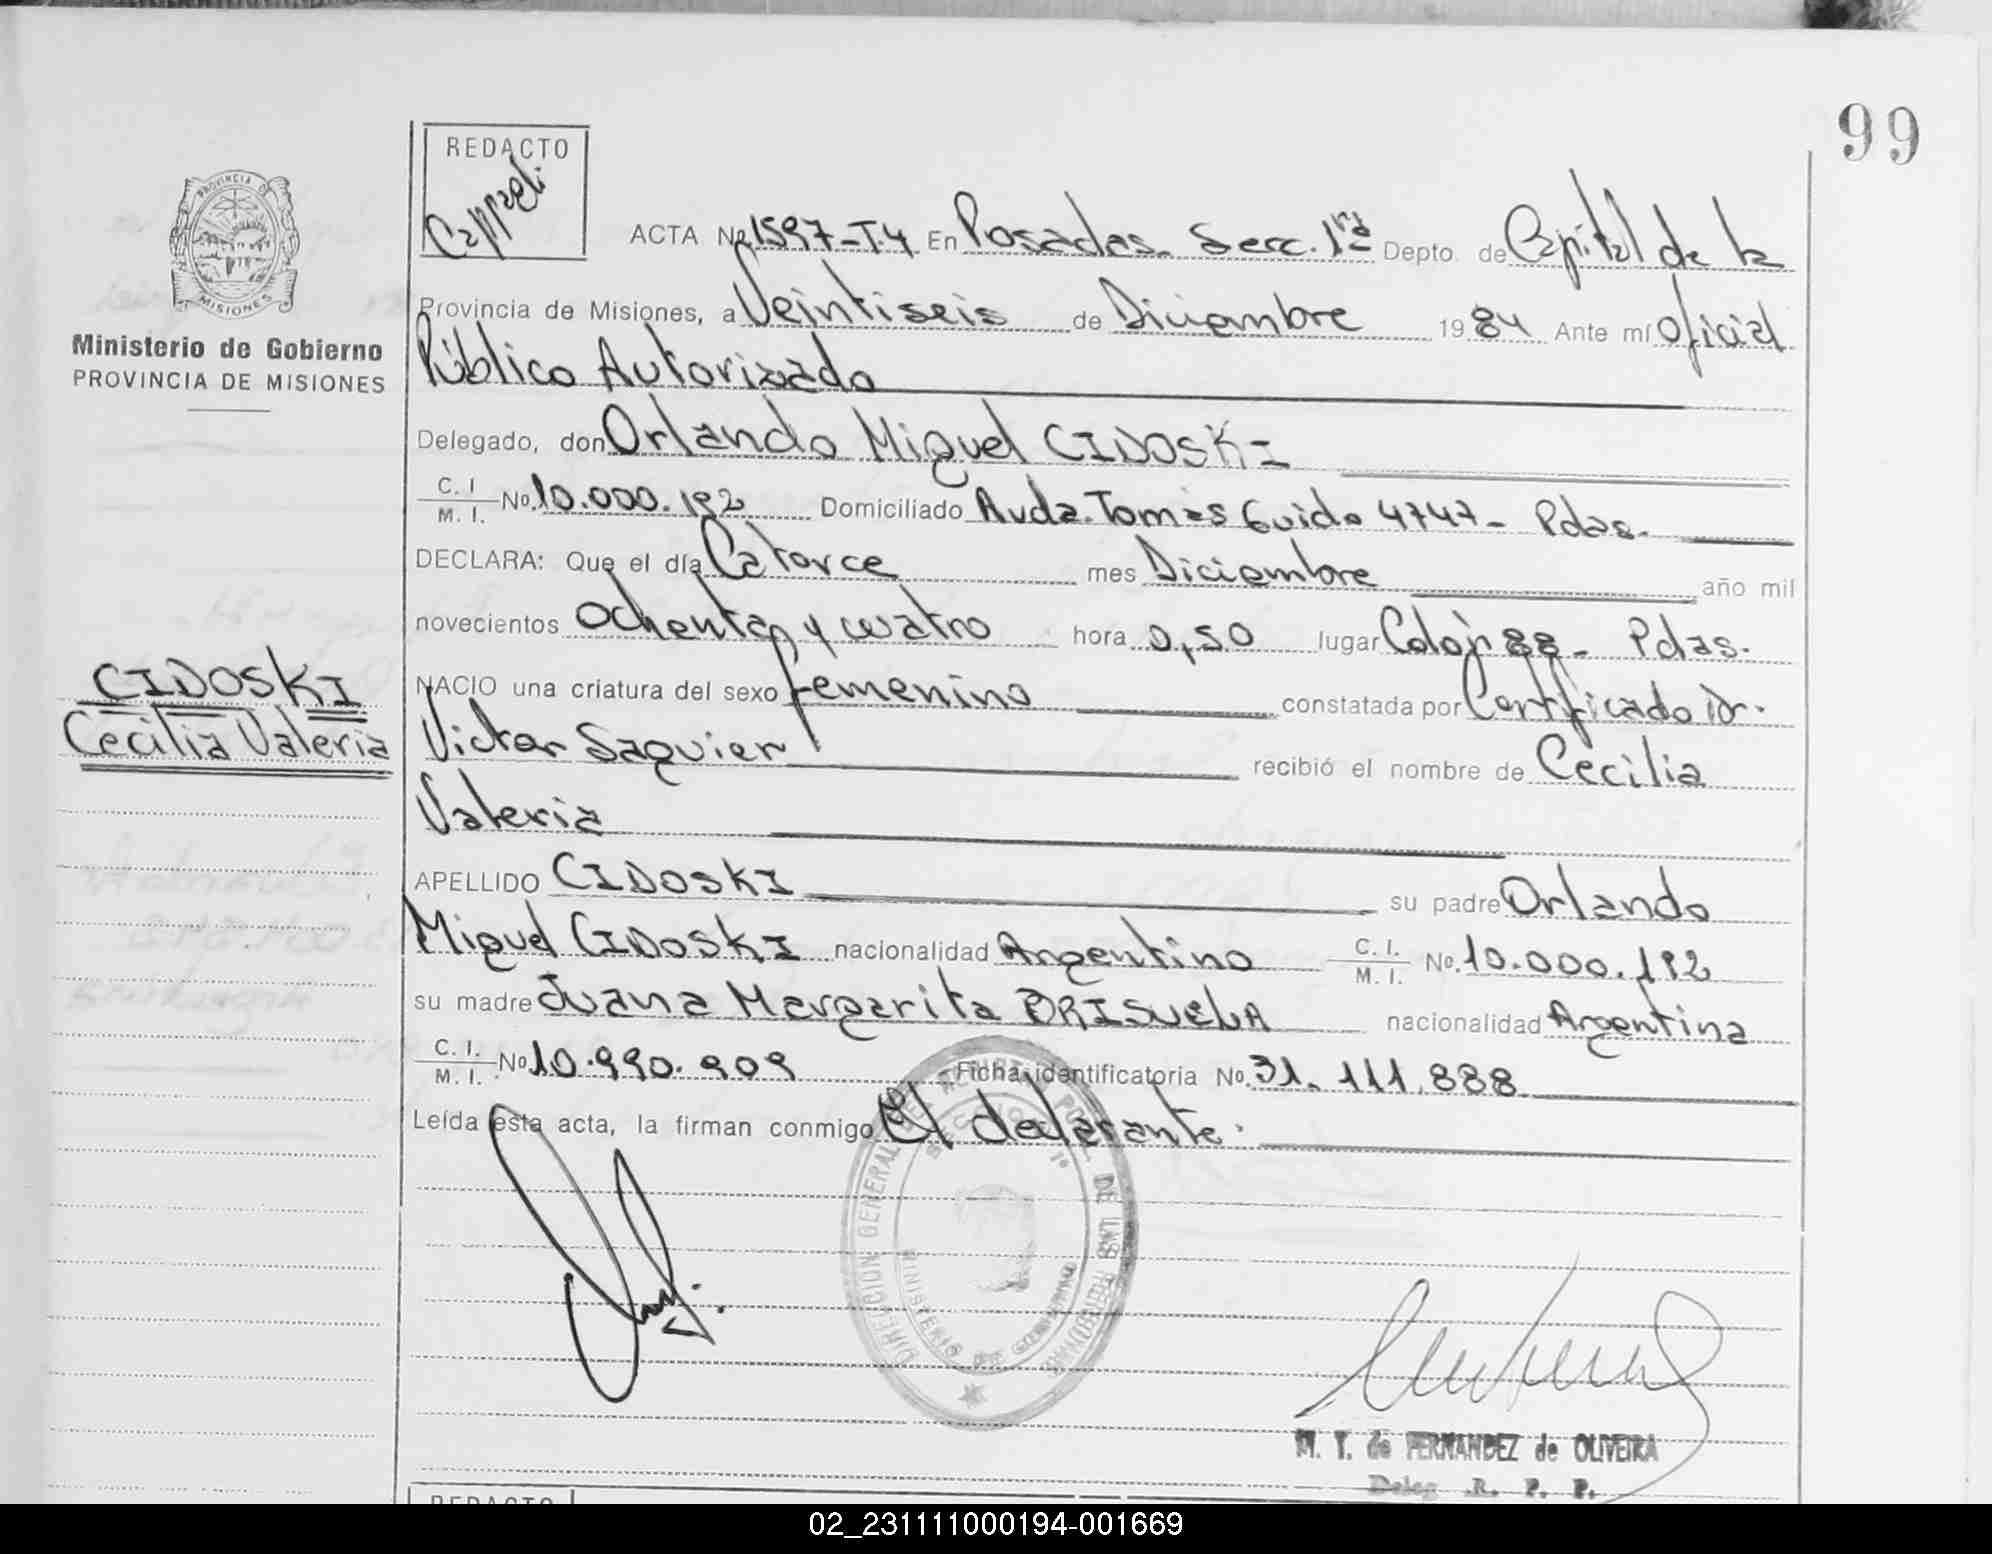 99
REDACTO
Cappeli
ACTA No 1597-T4 En Posadas. Secc. 1ra Depto. de Capital de la
Provincia de Misiones, a Veintiseis de Diciembre 1984 Ante mí Oficial
Público Autorizado
Delegado, don Orlando Miguel CIDOSKI
C. I. M. I. No. 10.000.192 Domiciliado Avda. Tomás Guido 4747- Pdas.
DECLARA: Que el día Catorce mes Diciembre año mil
novecientos Ochenta y cuatro hora 0,50 lugar Colón 88- Pdas.
NACIO una criatura del sexo femenino constatada por Certificado Dr.
Victor Saguier recibió el nombre de Cecilia
Valeria
APELLIDO CIDOSKI su padre Orlando
Miguel CIDOSKI nacionalidad Argentino C. I. M. I. No. 10.000.192
su madre Juana Margarita BRISUELA nacionalidad Argentina
C. I. M. I. No 10.990.909 Ficha identificatoria No. 31.111.888
Leída esta acta, la firman conmigo El declarante.
PROVINCIA DE MISIONES
Ministerio de Gobierno
PROVINCIA DE MISIONES
CIDOSKI
Cecilia Valeria
DIRECCION GENERAL DEL REGISTRO PCIAL. DE LAS PERSONAS
SECCION 1º
MINISTERIO DE GOBIERNO
M. T. de FERNANDEZ de OLIVEIRA
Deleg. R. P. P.
REDACTO
02_231111000194-001669